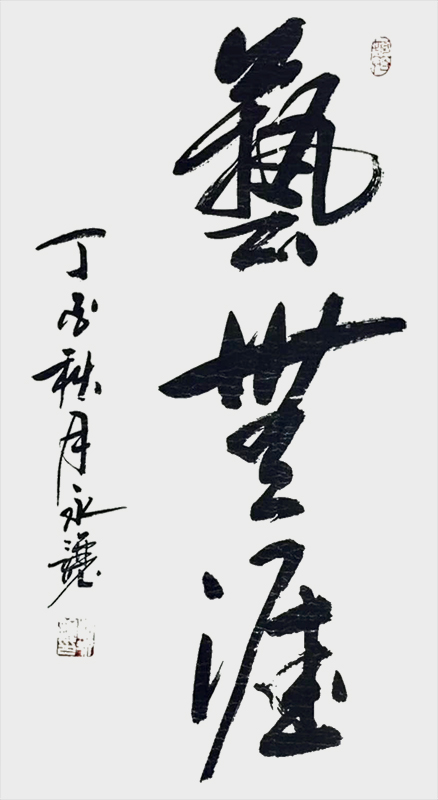 藝無涯
丁酉秋月永